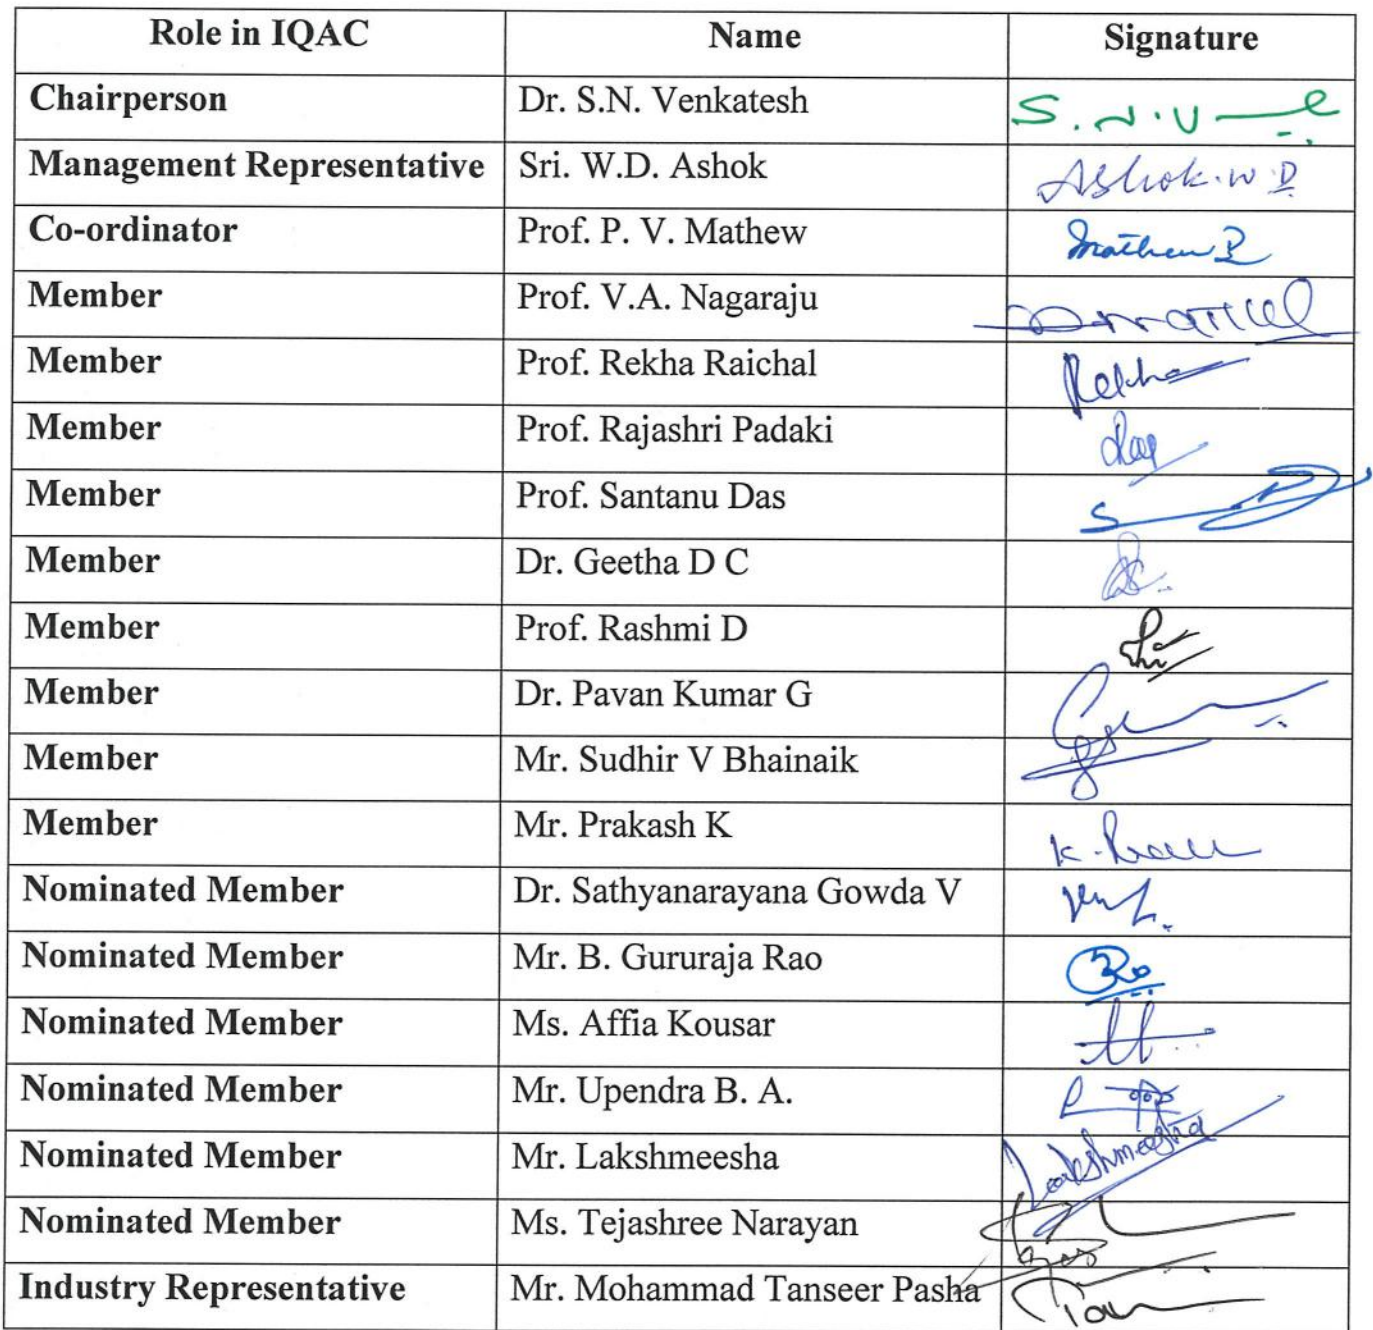 Role in IQAC Name Signature
Chairperson Dr. S.N. Venkatesh S.N.V
Management Representative Sri. W.D. Ashok Ashok.W.D
Co-ordinator Prof. P. V. Mathew Mathew P
Member Prof. V.A. Nagaraju
Member Prof. Rekha Raichal Rekha
Member Prof. Rajashri Padaki Raj
Member Prof. Santanu Das
Member Dr. Geetha D C
Member Prof. Rashmi D
Member Dr. Pavan Kumar G
Member Mr. Sudhir V Bhainaik
Member Mr. Prakash K
Nominated Member Dr. Sathyanarayana Gowda V
Nominated Member Mr. B. Gururaja Rao
Nominated Member Ms. Affia Kousar
Nominated Member Mr. Upendra B. A.
Nominated Member Mr. Lakshmeesha Lakshmeesha
Nominated Member Ms. Tejashree Narayan
Industry Representative Mr. Mohammad Tanseer Pasha